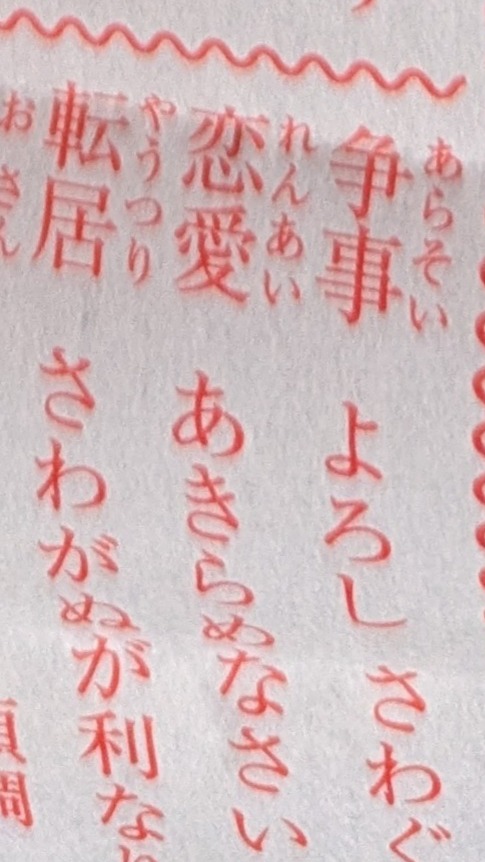 あらそい
争事 よろし さわぐ
れんあい
恋愛 あきらめなさい
やうつり
転居 さわがぬが利な